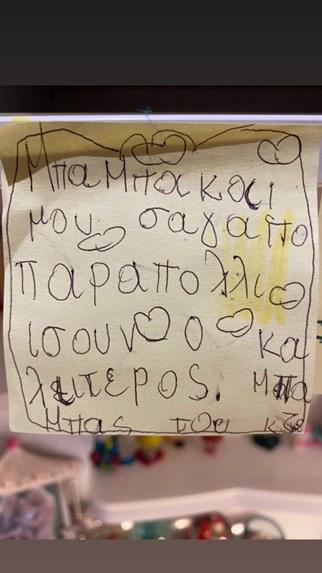 Μπαμπακαι
μου σαγαπο
παραπολλι
ισουν ο κα
λιτερος. Μπα
Μπας